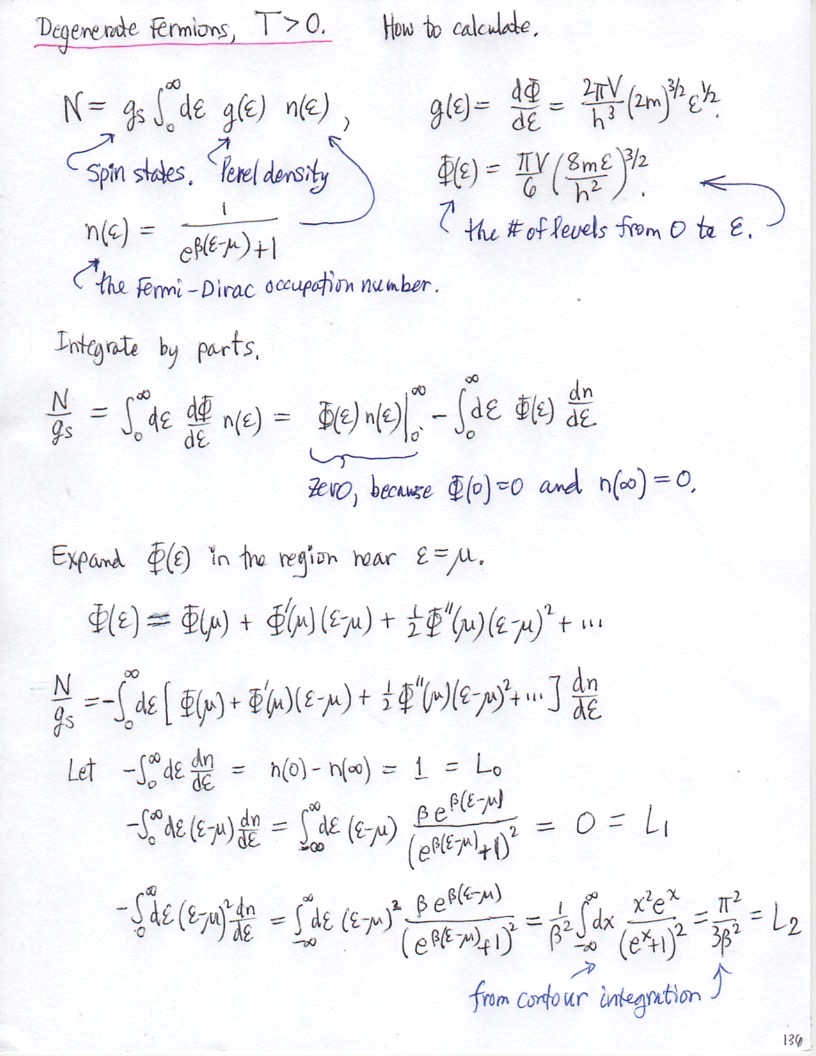 Degenerate Fermions, T > 0. How to calculate.
N = g_s ∫_0^∞ dε g(ε) n(ε) , g(ε) = dΦ/dε = 2πV/h³ (2m)^{3/2} ε^{1/2}.
Spin states. level density Φ(ε) = πV/6 (8mε/h²)^{3/2}.
n(ε) = 1/(e^{β(ε-μ)}+1) the # of levels from 0 to ε.
the Fermi-Dirac occupation number.
Integrate by parts.
N/g_s = ∫_0^∞ dε dΦ/dε n(ε) = Φ(ε) n(ε)|_0^∞ - ∫_0^∞ dε Φ(ε) dn/dε
zero, because Φ(0)=0 and n(∞)=0.
Expand Φ(ε) in the region near ε=μ.
Φ(ε) = Φ(μ) + Φ'(μ)(ε-μ) + ½Φ''(μ)(ε-μ)² + ...
N/g_s = -∫_0^∞ dε [Φ(μ) + Φ'(μ)(ε-μ) + ½Φ''(μ)(ε-μ)² + ...] dn/dε
Let -∫_0^∞ dε dn/dε = n(0) - n(∞) = 1 = L_0
-∫_0^∞ dε (ε-μ) dn/dε = ∫_{-∞}^∞ dε (ε-μ) βe^{β(ε-μ)}/(e^{β(ε-μ)}+1)² = 0 = L_1
-∫_0^∞ dε (ε-μ)² dn/dε = ∫_{-∞}^∞ dε (ε-μ)² βe^{β(ε-μ)}/(e^{β(ε-μ)}+1)² = 1/β² ∫_{-∞}^∞ dx x²e^x/(e^x+1)² = π²/3β² = L_2
from contour integration
136